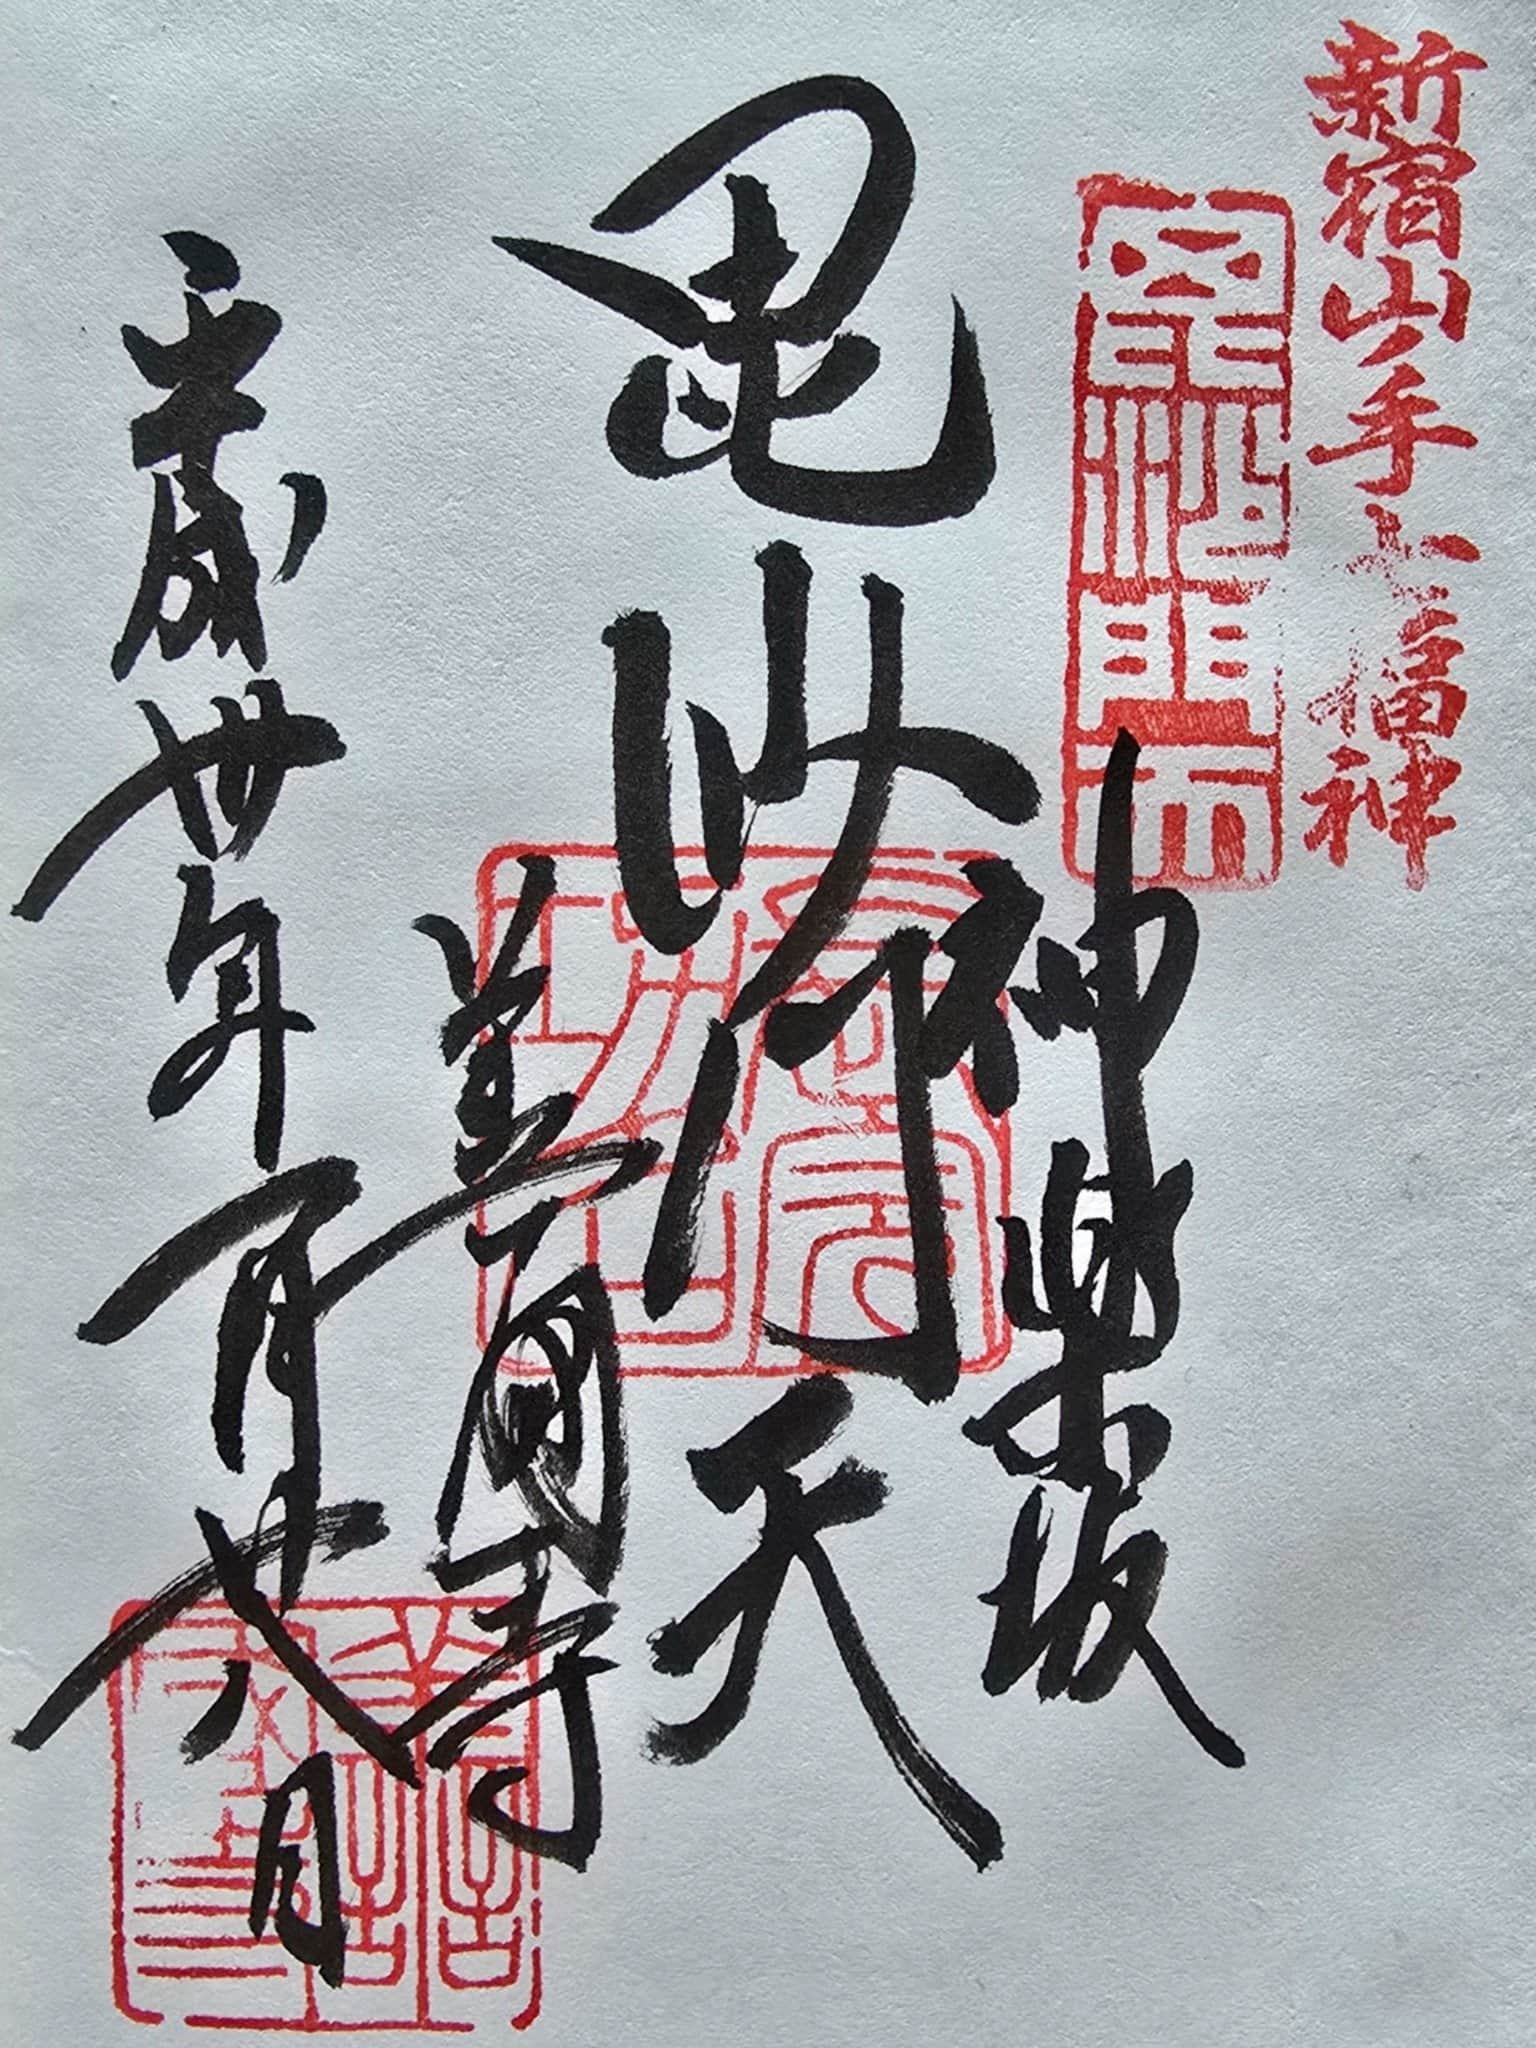 新宿山手七福神
毘沙門天
神楽坂
毘沙門天
善國寺
平成卅年一月廿八日